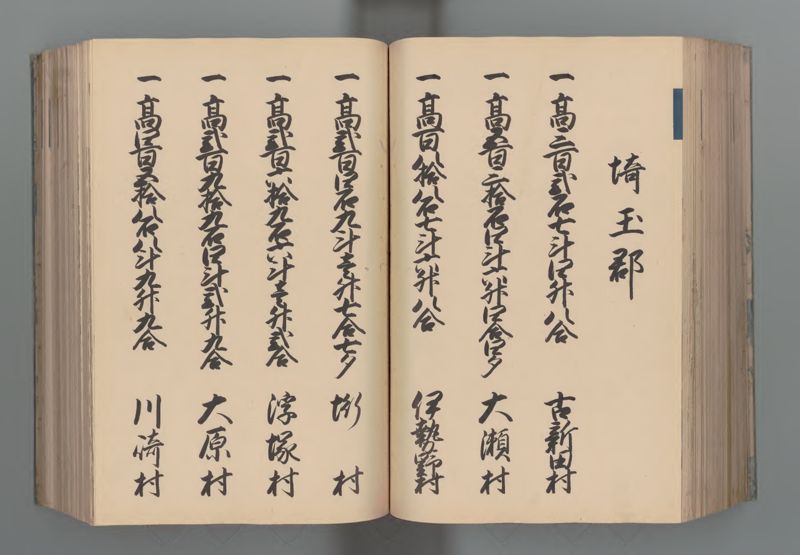 埼玉郡
一高三百弐石七斗四升八合 古新田村
一高五百三拾石四斗六升四合四夕 大瀬村
一高百八拾八石七斗六升八合 伊勢野村
一高弐百四石九斗壱升七合七夕 村
一高弐百六拾九石六斗壱升弐合 浮塚村
一高弐百九拾九石四斗弐升九合 大原村
一高四百五拾八石八斗九升九合 川崎村